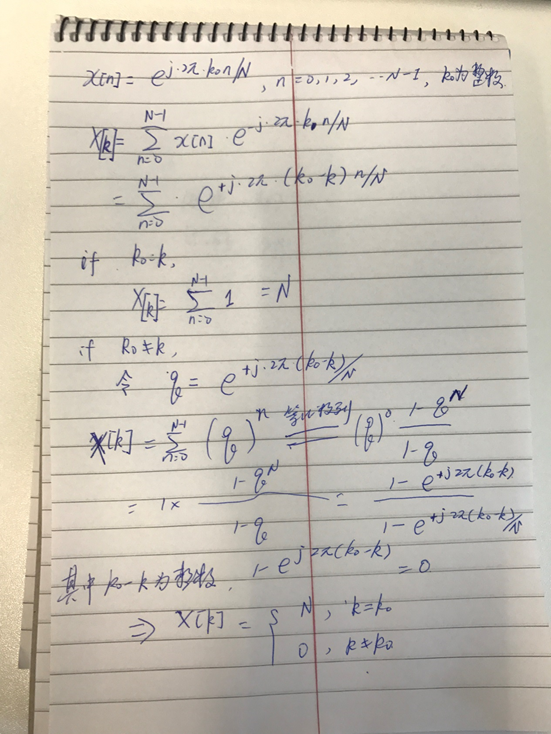 x[n] = e^{j·2π·k₀n/N}, n=0,1,2,…N-1, k₀为整数
X[k] = \sum_{n=0}^{N-1} x[n]·e^{-j·2π·k·n/N}
= \sum_{n=0}^{N-1} · e^{+j·2π·(k₀-k)n/N}
if k₀=k,
X[k] = \sum_{n=0}^{N-1} 1 = N
if k₀≠k,
令 q = e^{+j·2π(k₀-k)/N}
X[k] = \sum_{n=0}^{N-1} (q)^n \xlongequal{等比数列} (q)^0 · \frac{1-q^N}{1-q}
= 1× \frac{1-q^N}{1-q} = \frac{1-e^{+j2π(k₀-k)}}{1-e^{+j2π(k₀-k)/N}}
其中 k₀-k为整数, 1-e^{j2π(k₀-k)} = 0
⇒ X[k] = { N, k=k₀
0, k≠k₀